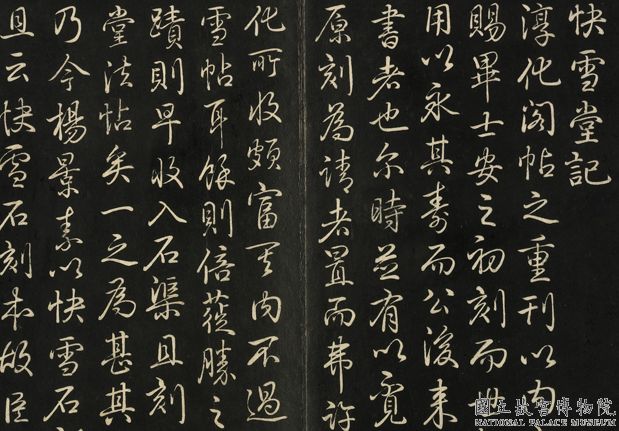 快雪堂記
淳化閣帖之重刊以內
賜畢士安之初刻而
用以永其壽而公後来
書者也尔時並有以覓
原刻為請者置而弗許
化所收頗富其內不過
雪帖耳餘則倍蓰勝之
蹟則早收入石渠且刻
堂法帖矣一之為甚其
乃今楊景素以快雪石
且云快雪石刻本故臣
國立故宮博物院
NATIONAL PALACE MUSEUM